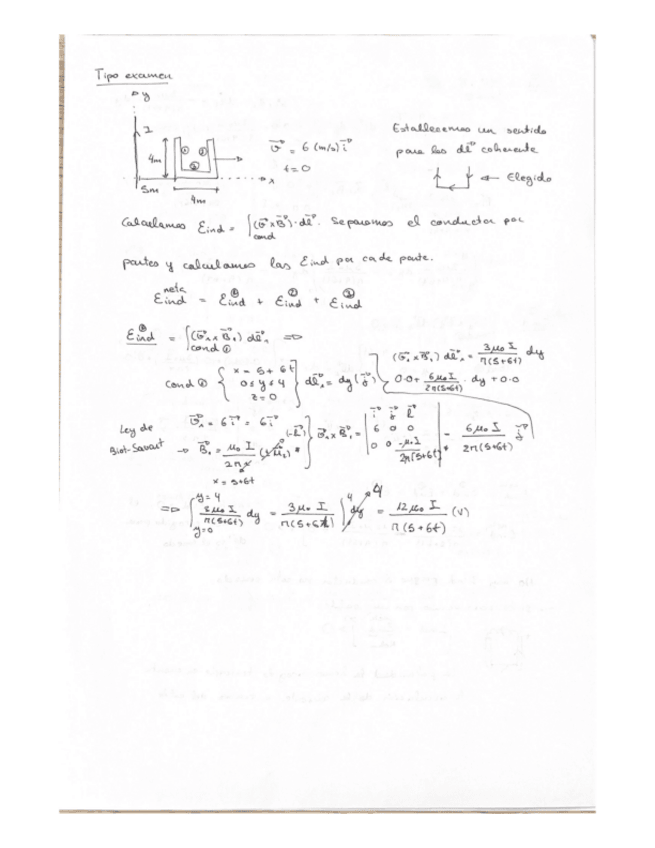 Tipo examen
y
I
4m
① ② ③
x
5m
4m
v⃗ = 6 (m/s) i⃗
t = 0
Establecemos un sentido
para los dl⃗ coherente
← Elegido
Calculamos Eind = ∫cond (v⃗ x B⃗)·dl⃗. Separamos el conductor por
partes y calculamos las Eind por cada parte.
Eind neta = Eind ① + Eind ② + Eind ③
Eind ① = ∫cond ① (v⃗₁ x B⃗₁) dl⃗₁ ⇒
(v⃗₁ x B⃗₁) dl⃗₁ = 3μ₀ I / π(5+6t) dy
0·0 + 6μ₀ I / 2π(5+6t) · dy + 0·0
cond ① { x = 5 + 6t
0 ≤ y ≤ 4
z = 0 } dl⃗₁ = dy (j⃗)
v⃗₁ = 6 i⃗ = 6 i⃗
Ley de
Biot-Savart → B⃗₁ = μ₀ I / 2πx (-k⃗)
x = 5+6t
v⃗₁ x B⃗₁ = | i⃗ j⃗ k⃗
6 0 0
0 0 -μ₀ I / 2π(5+6t) | = 6μ₀ I / 2π(5+6t) j⃗
⇒ ∫ y=0 y=4 3μ₀ I / π(5+6t) dy = 3μ₀ I / π(5+6t) ∫ 4 dy 4 = 12μ₀ I / π(5+6t) (V)